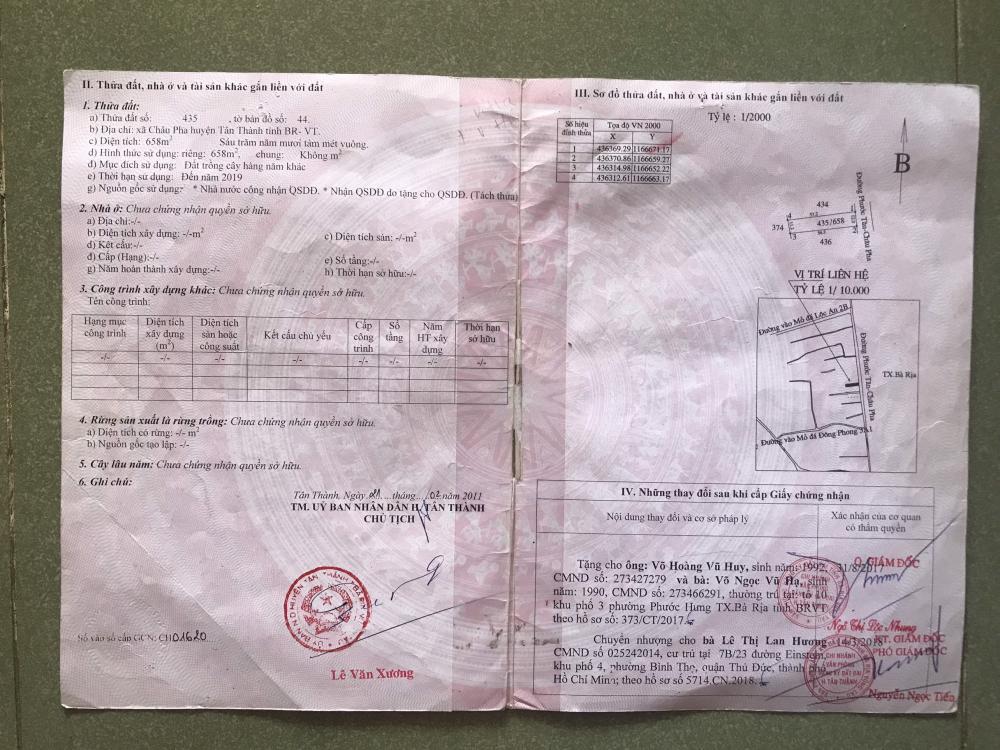 II. Thửa đất, nhà ở và tài sản khác gắn liền với đất
1. Thửa đất:
a) Thửa đất số: 435 , tờ bản đồ số: 44.
b) Địa chỉ: xã Châu Pha huyện Tân Thành tỉnh BR- VT.
c) Diện tích: 658m² Sáu trăm năm mươi tám mét vuông.
d) Hình thức sử dụng: riêng: 658m², chung: Không m²
đ) Mục đích sử dụng: Đất trồng cây hàng năm khác
e) Thời hạn sử dụng: Đến năm 2019
g) Nguồn gốc sử dụng: * Nhà nước công nhận QSDĐ. * Nhận QSDĐ do tặng cho QSDĐ. (Tách thửa)
2. Nhà ở: Chưa chứng nhận quyền sở hữu.
a) Địa chỉ:-/-
b) Diện tích xây dựng: -/-m² c) Diện tích sàn: -/-m²
d) Kết cấu:-/-
đ) Cấp (Hạng):-/- e) Số tầng:-/-
g) Năm hoàn thành xây dựng:-/- h) Thời hạn sở hữu:-/-
3. Công trình xây dựng khác: Chưa chứng nhận quyền sở hữu.
Tên công trình:
Hạng mục công trình Diện tích xây dựng (m²) Diện tích sàn hoặc công suất Kết cấu chủ yếu Cấp công trình Số tầng Năm HT xây dựng Thời hạn sở hữu
-/- -/- -/- -/- -/- -/- -/- -/-
4. Rừng sản xuất là rừng trồng: Chưa chứng nhận quyền sở hữu.
a) Diện tích có rừng: -/- m²
b) Nguồn gốc tạo lập: -/-
5. Cây lâu năm: Chưa chứng nhận quyền sở hữu.
6. Ghi chú:
Tân Thành, Ngày 21 ... tháng ... 02 năm 2011
TM. UỶ BAN NHÂN DÂN H. TÂN THÀNH
CHỦ TỊCH
Lê Văn Xương
Số vào sổ cấp GCN: CH01620
III. Sơ đồ thửa đất, nhà ở và tài sản khác gắn liền với đất
Tỷ lệ : 1/2000
Số hiệu đỉnh thửa Tọa độ VN 2000
X Y
1 436369.29 1166671.17
2 436370.86 1166659.27
3 436314.98 1166652.22
4 436312.61 1166663.17
B
434
374
435/658
436
3
Đường Phước Tân-Châu Pha
VỊ TRÍ LIÊN HỆ
TỶ LỆ 1/ 10.000
Đường vào Mỏ đá Lộc An 2B
Đường Phước Tân-Châu Pha
TX.Bà Rịa
Đường vào Mỏ đá Đông Phong 3A1
IV. Những thay đổi sau khi cấp Giấy chứng nhận
Nội dung thay đổi và cơ sở pháp lý
Xác nhận của cơ quan có thẩm quyền
Tặng cho ông: Võ Hoàng Vũ Huy, sinh năm: 1992, 31/8/2017
CMND số: 273427279 và bà: Võ Ngọc Vũ Hạ, sinh
năm: 1990, CMND số: 273466291, thường trú tại: tổ 10
khu phố 3 phường Phước Hưng TX.Bà Rịa tỉnh BRVT
theo hồ sơ số: 373/CT/2017
GIÁM ĐỐC
Ngô Thị Lộc Nhung
Chuyển nhượng cho bà Lê Thị Lan Hương 14/3/2018
CMND số 025242014, cư trú tại 7B/23 đường Einstein,
khu phố 4, phường Bình Thọ, quận Thủ Đức, thành phố
Hồ Chí Minh; theo hồ sơ số 5714.CN.2018.
KT. GIÁM ĐỐC
PHÓ GIÁM ĐỐC
CHI NHÁNH
VĂN PHÒNG
ĐĂNG KÝ ĐẤT ĐAI
H.TÂN THÀNH
Nguyễn Ngọc Tiến